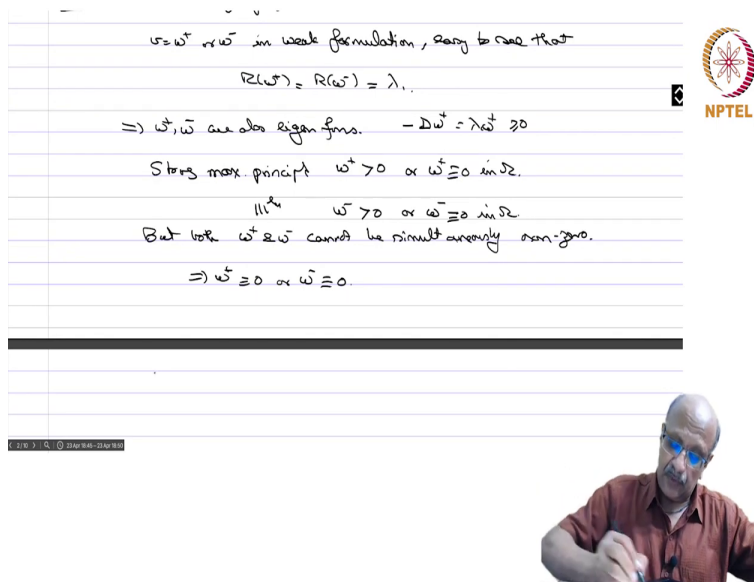 v = w⁺ or w⁻ in weak formulation, easy to see that
R(w⁺) = R(w⁻) = λ₁.
⇒ w⁺, w⁻ are also eigen fns. −Δw⁺ = λw⁺ ≥ 0
Strong max. principle w⁺ > 0 or w⁺ ≡ 0 in Ω.
|||ly w⁻ > 0 or w⁻ ≡ 0 in Ω.
But both w⁺ & w⁻ cannot be simultaneously non-zero.
⇒ w⁺ ≡ 0 or w⁻ ≡ 0.
NPTEL
2/10 23 Apr 18:45 – 23 Apr 18:50